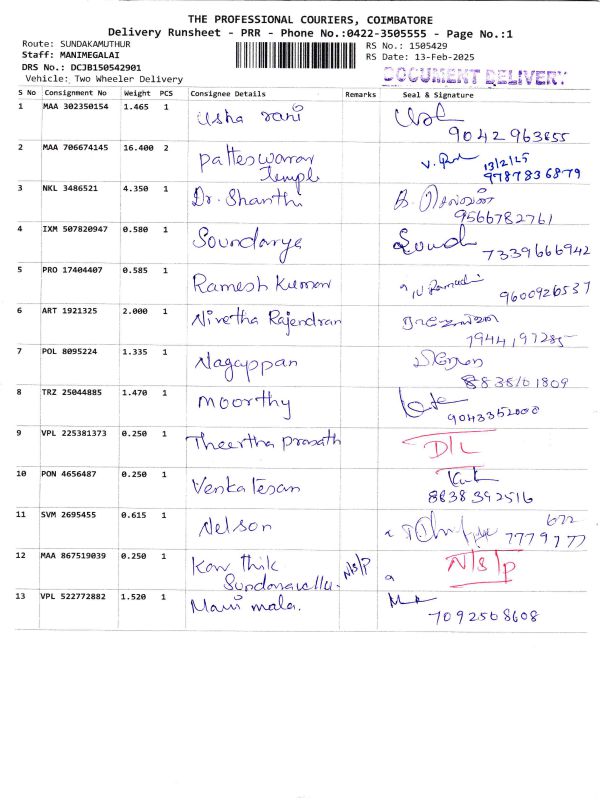 THE PROFESSIONAL COURIERS, COIMBATORE
Delivery Runsheet - PRR - Phone No.:0422-3505555 - Page No.:1
Route: SUNDAKAMUTHUR RS No.: 1505429
Staff: MANIMEGALAI RS Date: 13-Feb-2025
DRS No.: DCJB150542901
Vehicle: Two Wheeler Delivery DOCUMENT DELIVERY
S No Consignment No Weight PCS Consignee Details Remarks Seal & Signature
1 MAA 302350154 1.465 1 Usha rani
9042963855
2 MAA 706674145 16.400 2 Patteswarar Temple 13/2/25
9787836879
3 NKL 3486521 4.350 1 Dr. Shanthi
9566782761
4 IXM 507820947 0.580 1 Soundarya
7339666942
5 PRO 17404407 0.585 1 Ramesh Kumar
9600926537
6 ART 1921325 2.000 1 Nivetha Rajendran
7944197285
7 POL 8095224 1.335 1 Nagappan
8838101809
8 TRZ 25044885 1.470 1 Moorthy
9043352000
9 VPL 225381373 0.250 1 Theertha prasath D/L
10 PON 4656487 0.250 1 Venkatesan
8838392516
11 SVM 2695455 0.615 1 Nelson 672
7779777
12 MAA 867519039 0.250 1 Karthik N/S/P N/S/P
13 VPL 522772882 1.520 1 Mani mala.
7092568608